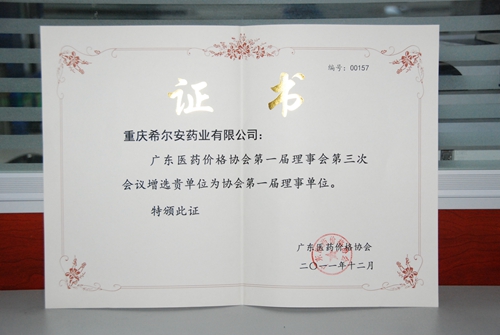 编号：00157
证 书
重庆希尔安药业有限公司：
广东医药价格协会第一届理事会第三次
会议增选贵单位为协会第一届理事单位。
特颁此证
广东医药价格协会
二〇一一年十二月